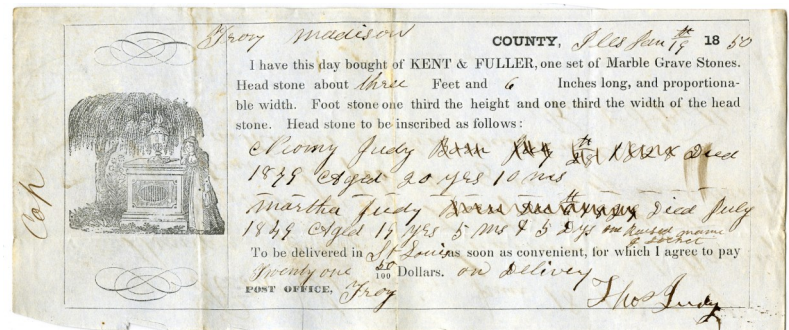 Troy Madison COUNTY, Ills Jan 19th 1850
I have this day bought of KENT & FULLER, one set of Marble Grave Stones.
Head stone about three Feet and 6 Inches long, and proportiona-
ble width. Foot stone one third the height and one third the width of the head
stone. Head stone to be inscribed as follows:
Niomy Judy Born 28th 1828 Died
1849 Aged 20 yrs 10 ms
Martha Judy Died July
1849 Aged 14 yrs 5 ms & 5 Dys one Raised name
To be delivered in St Louis as soon as convenient, for which I agree to pay
Twenty one 50/100 Dollars. on Delivey
POST OFFICE, Troy Thos Judy
Cop